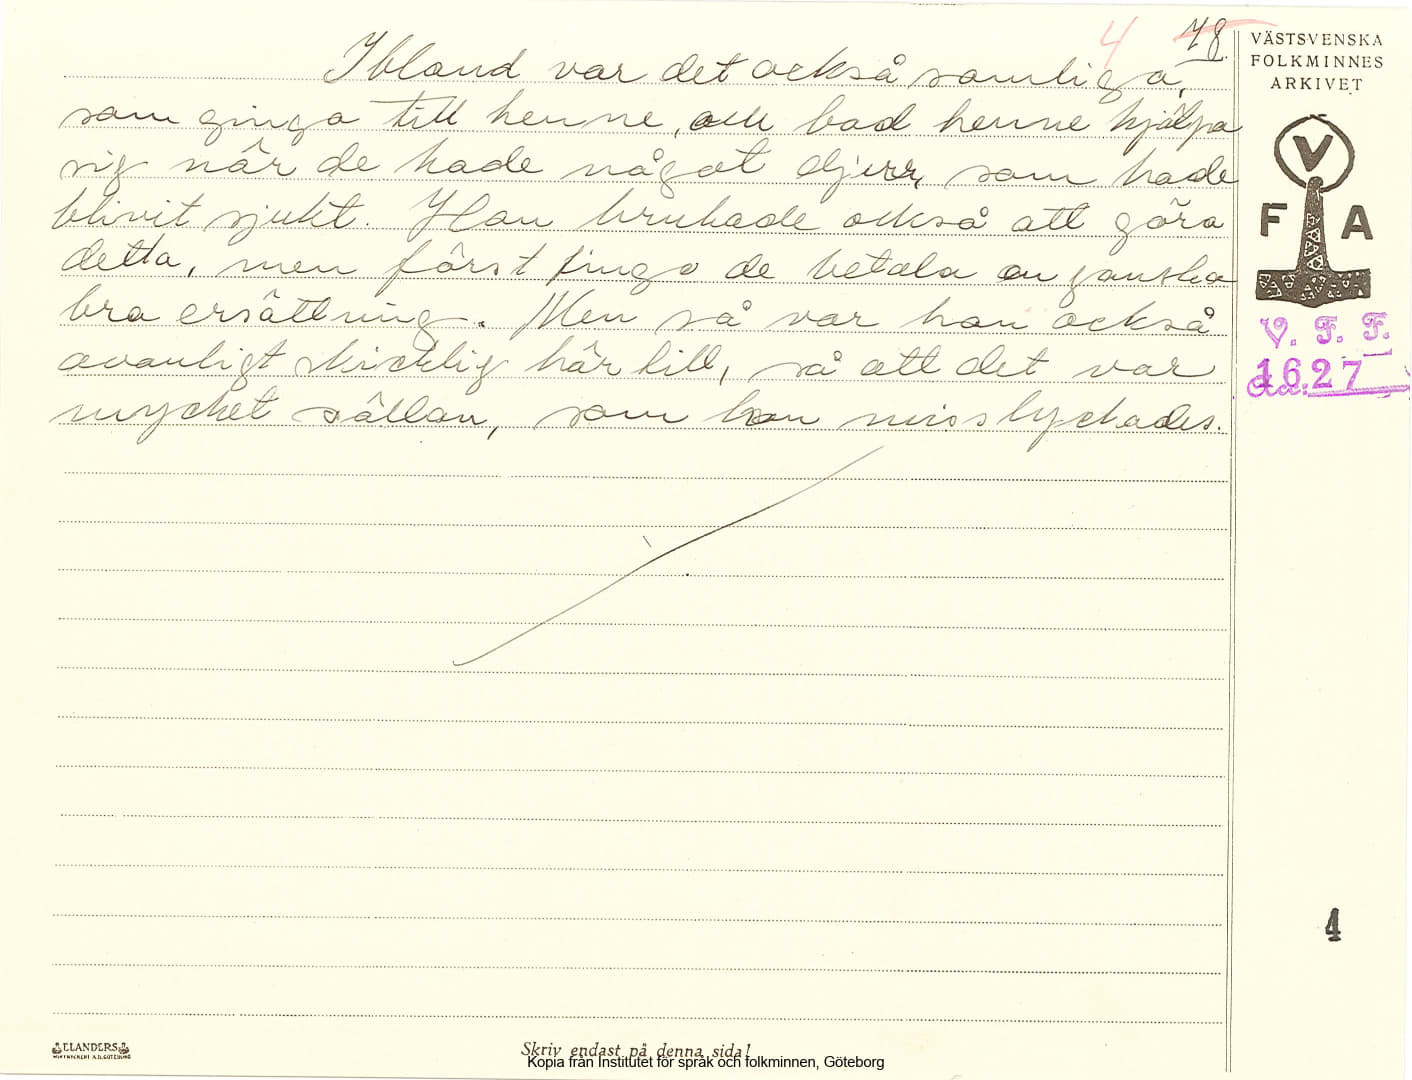 4 78
Ibland var det också somliga,
som gingo till henne, och bad henne hjälpa
sig när de hade något djur, som hade
blivit sjukt. Hon brukade också att göra
detta, men först fingo de betala en ganska
bra ersättning. Men så var hon också
ovanligt skicklig härtill, så att det var
mycket sällan, som hon misslyckades.
VÄSTSVENSKA
FOLKMINNES
ARKIVET
V
F A
V. F. F.
1627
4
ELANDERS
Skriv endast på denna sida!
Kopia från Institutet för språk och folkminnen, Göteborg